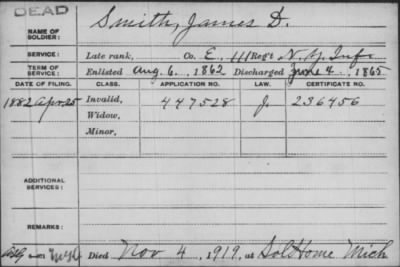 DEAD
NAME OF SOLDIER: Smith, James D.
SERVICE: Late rank, Co. E, 111 Reg't N.Y. Inf.
TERM OF SERVICE: Enlisted Aug. 6, 1862 Discharged June 4, 1865
DATE OF FILING. CLASS. APPLICATION NO. LAW. CERTIFICATE NO.
1882 Apr. 25 Invalid, 447528 J. 236456
Widow,
Minor,
ADDITIONAL SERVICES:
REMARKS:
Died Nov 4, 1919, at Sol Home Mich